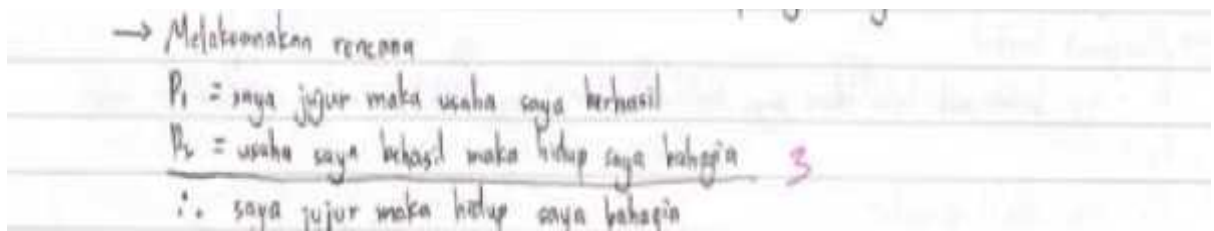 → Melaksanakan rencana
P₁ = saya jujur maka usaha saya berhasil
P₂ = usaha saya behasil maka hidup saya bahagia 3
∴ saya jujur maka hidup saya bahagia